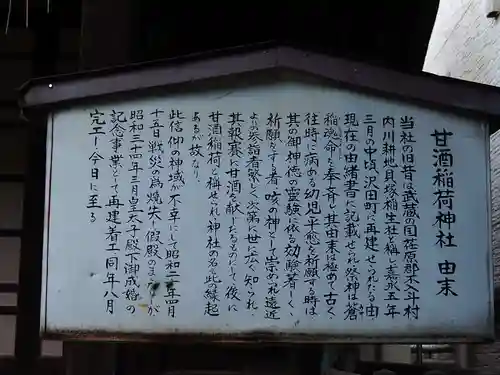 甘酒稲荷神社 由来
当社の旧昔は武蔵の国荏原郡不入斗村
内川耕地貝塚稲生社と称し嘉永五年
三月の中頃沢田町に再建せられたる由、
現在の由緒書に記載せられ祭神は蒼
稲魂命を奉斉し其由来は極めて古く、
往時に病める幼児平愈を祈願する時は
其の御神徳の霊験に依る効験著しく、
祈願をする者咳の神として崇められ遠近
よりの参詣者繁く次第に世に広く知られ、
其報賽に甘酒を献じたるものにして後に
甘酒稲荷と称せられ神社の名も此の縁起
あるが故なり、
此信仰の神域が不幸にして昭和二十年四月
十五日戦災の為焼失し仮殿のまゝなりしが
昭和三十四年三月皇太子殿下御成婚の
記念事業として再建着工同年八月
完工し今日に至る